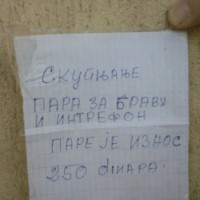 Скупљање
ПАРА ЗА БРАВУ
И ИНТРЕФОН
ПАРЕ ЈЕ ИЗНОС
250 дінара.